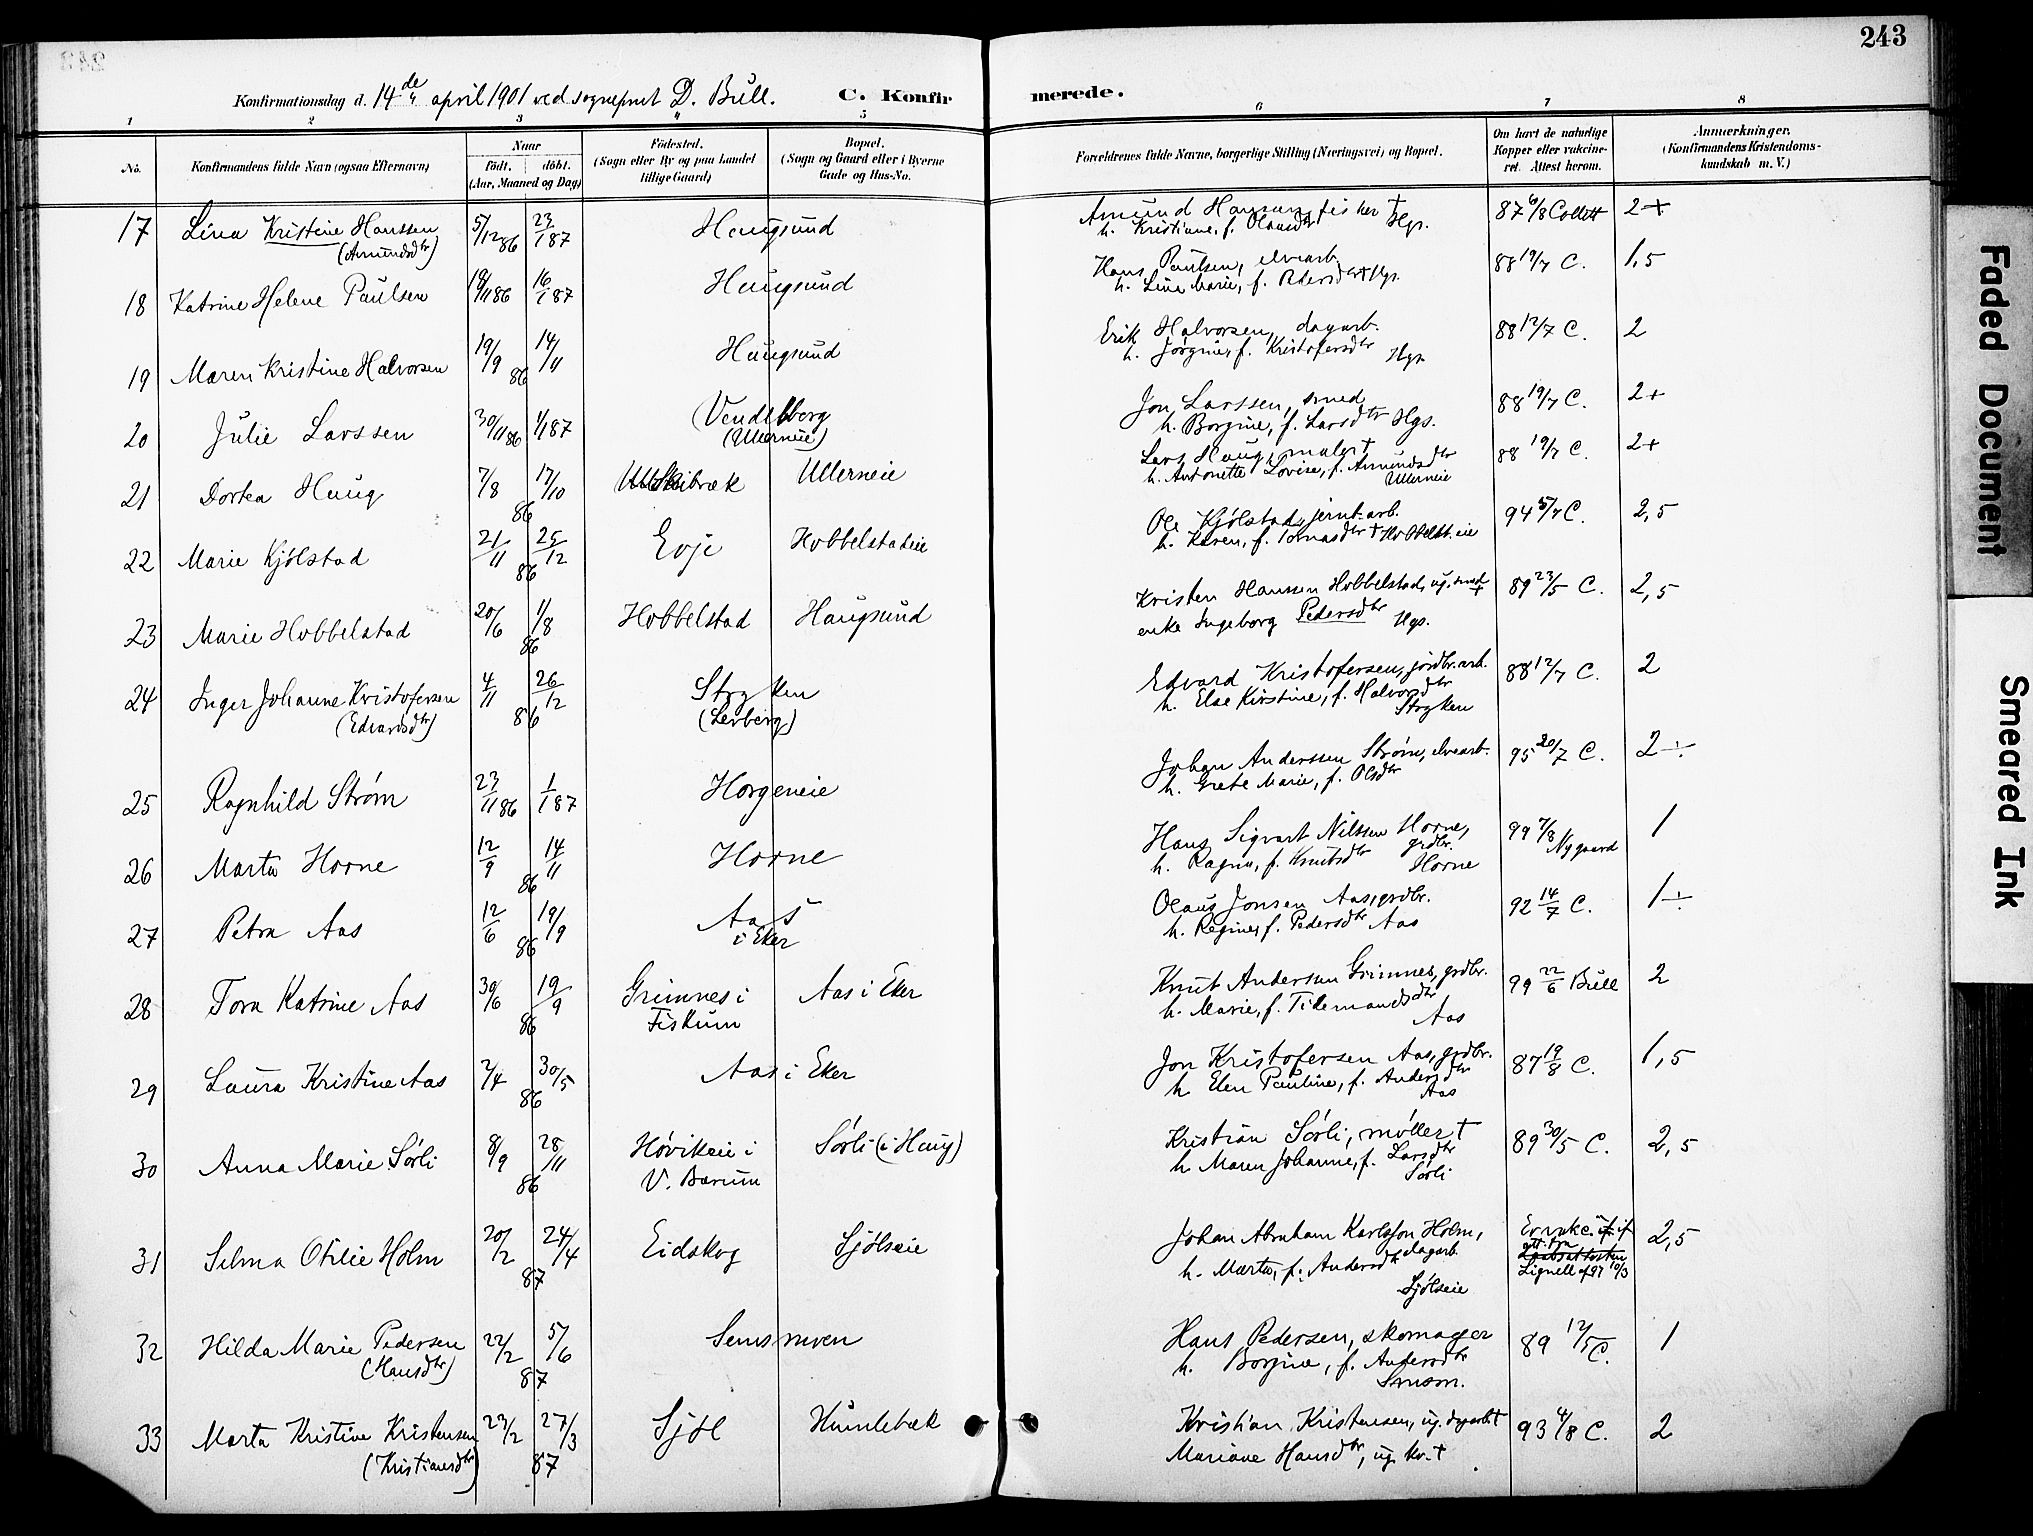 243
Konfirmationsdag d. 14de april 1901 ved sogneprest D. Bull.
C. Konfirmerede.
1 2 3 4 5 6 7 8
No.
Konfirmandens fulde Navn (ogsaa Efternavn)
Naar
Født. døbt.
(Aar, Maaned og Dag)
Fødested.
(Sogn eller By og paa Landet
tillige Gaard)
Bopæl.
(Sogn og Gaard eller i Byerne
Gade og Hus-No.
Forældrenes fulde Navne, borgerlige Stilling (Næringsvei) og Bopæl.
Om havt de naturlige
Kopper eller vakcine-
ret. Attest herom.
Anmerkninger.
(Konfirmandens Kristendoms-
kundskab m. V.)
17 Lina Kristine Hanssen 5/12 86 23/1 87 Haugsund Amund Hansen, fisker † 87 6/8 Collett 2+
(Amundsdtr) h. Kristiane, f. Olausdtr Hgs.
18 Katrine Helene Paulsen 18/11 86 16/1 87 Haugsund Hans Paulsen, elvearb. 88 19/7 C. 1,5
h. Lina Marie, f. Pedersdtr Hgs.
19 Maren Kristine Halvorsen 19/9 14/11 86 Haugsund Erik Halvorsen, dagarb. 88 12/7 C. 2
h. Jørgine, f. Kristofersdtr Hgs.
20 Julie Larssen 30/11 86 1/1 87 Vendelborg Jon Larssen, smed 88 19/7 C. 2+
(Ullerneie) h. Borgine, f. Larsdtr Hgs.
21 Dortea Haug 7/8 17/10 86 Skibræk Ullerneie Lars Haug, maler † 88 19/7 C. 2+
h. Antonette Lovise, f. Amundsdtr
Ullerneie
22 Marie Kjølstad 21/11 25/12 86 Evje Hobbelstadeie Ole Kjølstad, jernb.arb. 94 5/7 C. 2,5
h. Karen, f. Tomasdtr † Hobbelst.eie
23 Marie Hobbelstad 20/6 1/8 86 Hobbelstad Haugsund Kristen Hansen Hobbelstad, ug. smed † 89 23/5 C. 2,5
enke Ingeborg Pedersdtr Hgs.
24 Inger Johanne Kristofersen 4/11 26/12 86 Stryken Edvard Kristofersen, jordbr.arb. 88 12/7 C. 2
(Edvardsdtr) (Lerberg) h. Else Kirstine, f. Halvorsdtr
Stryken
25 Ragnhild Strøm 23/11 86 1/1 87 Horgeneie Johan Anderssen Strøm, elvearb. 95 20/7 C. 2÷
h. Grete Marie, f. Olsdtr
26 Marta Horne 12/9 14/11 86 Horne Hans Sigvart Nilssen Horne, 99 7/8 Nygaard 1
grdbr.
h. Ragna, f. Knutsdtr Horne
27 Petra Aas 12/6 19/9 86 Aas Olaus Jonsen Aas, grdbr. 92 14/7 C. 1÷
i Eker h. Regine, f. Pedersdtr Aas
28 Tora Katrine Aas 30/6 19/9 86 Grimnes i Aas i Eker Knut Andersen Grimnes, grdbr. 99 22/6 Bull 2
Fiskum h. Marie, f. Tidemandsdtr
Aas
29 Laura Kristine Aas 2/4 30/5 86 Aas i Eker Jon Kristofersen Aas, grdbr. 87 19/8 C. 1,5
h. Elen Pauline, f. Andersdtr
Aas
30 Anna Marie Sørli 8/9 28/11 86 Høvikeie i Sørli (i Haug) Kristian Sørli, møller † 89 30/5 C. 2,5
V. Bærum h. Maren Johanne, f. Larsdtr
Sørli
31 Selma Otilie Holm 20/2 24/4 87 Eidskog Sjølseie Johan Abraham Karlsson Holm, Er vakc. if 2,5
dagarb. att. fra
h. Marta, f. Andersdtr Lignell af 97 10/3
Sjølseie
32 Hilda Marie Pedersen 22/2 5/6 87 Semsmoen Hans Pedersen, skomager 89 12/5 C. 1
(Hansdtr) h. Borgine, f. Andersdtr
Smsm.
33 Marta Kristine Kristensen 23/2 27/3 87 Sjøl Humlebæk Kristian Kristensen, ug. dgarb † 93 4/8 C. 2
(Kristiansdtr) Mariane Hansdtr, ug. kv. †
Faded Document
Smeared Ink